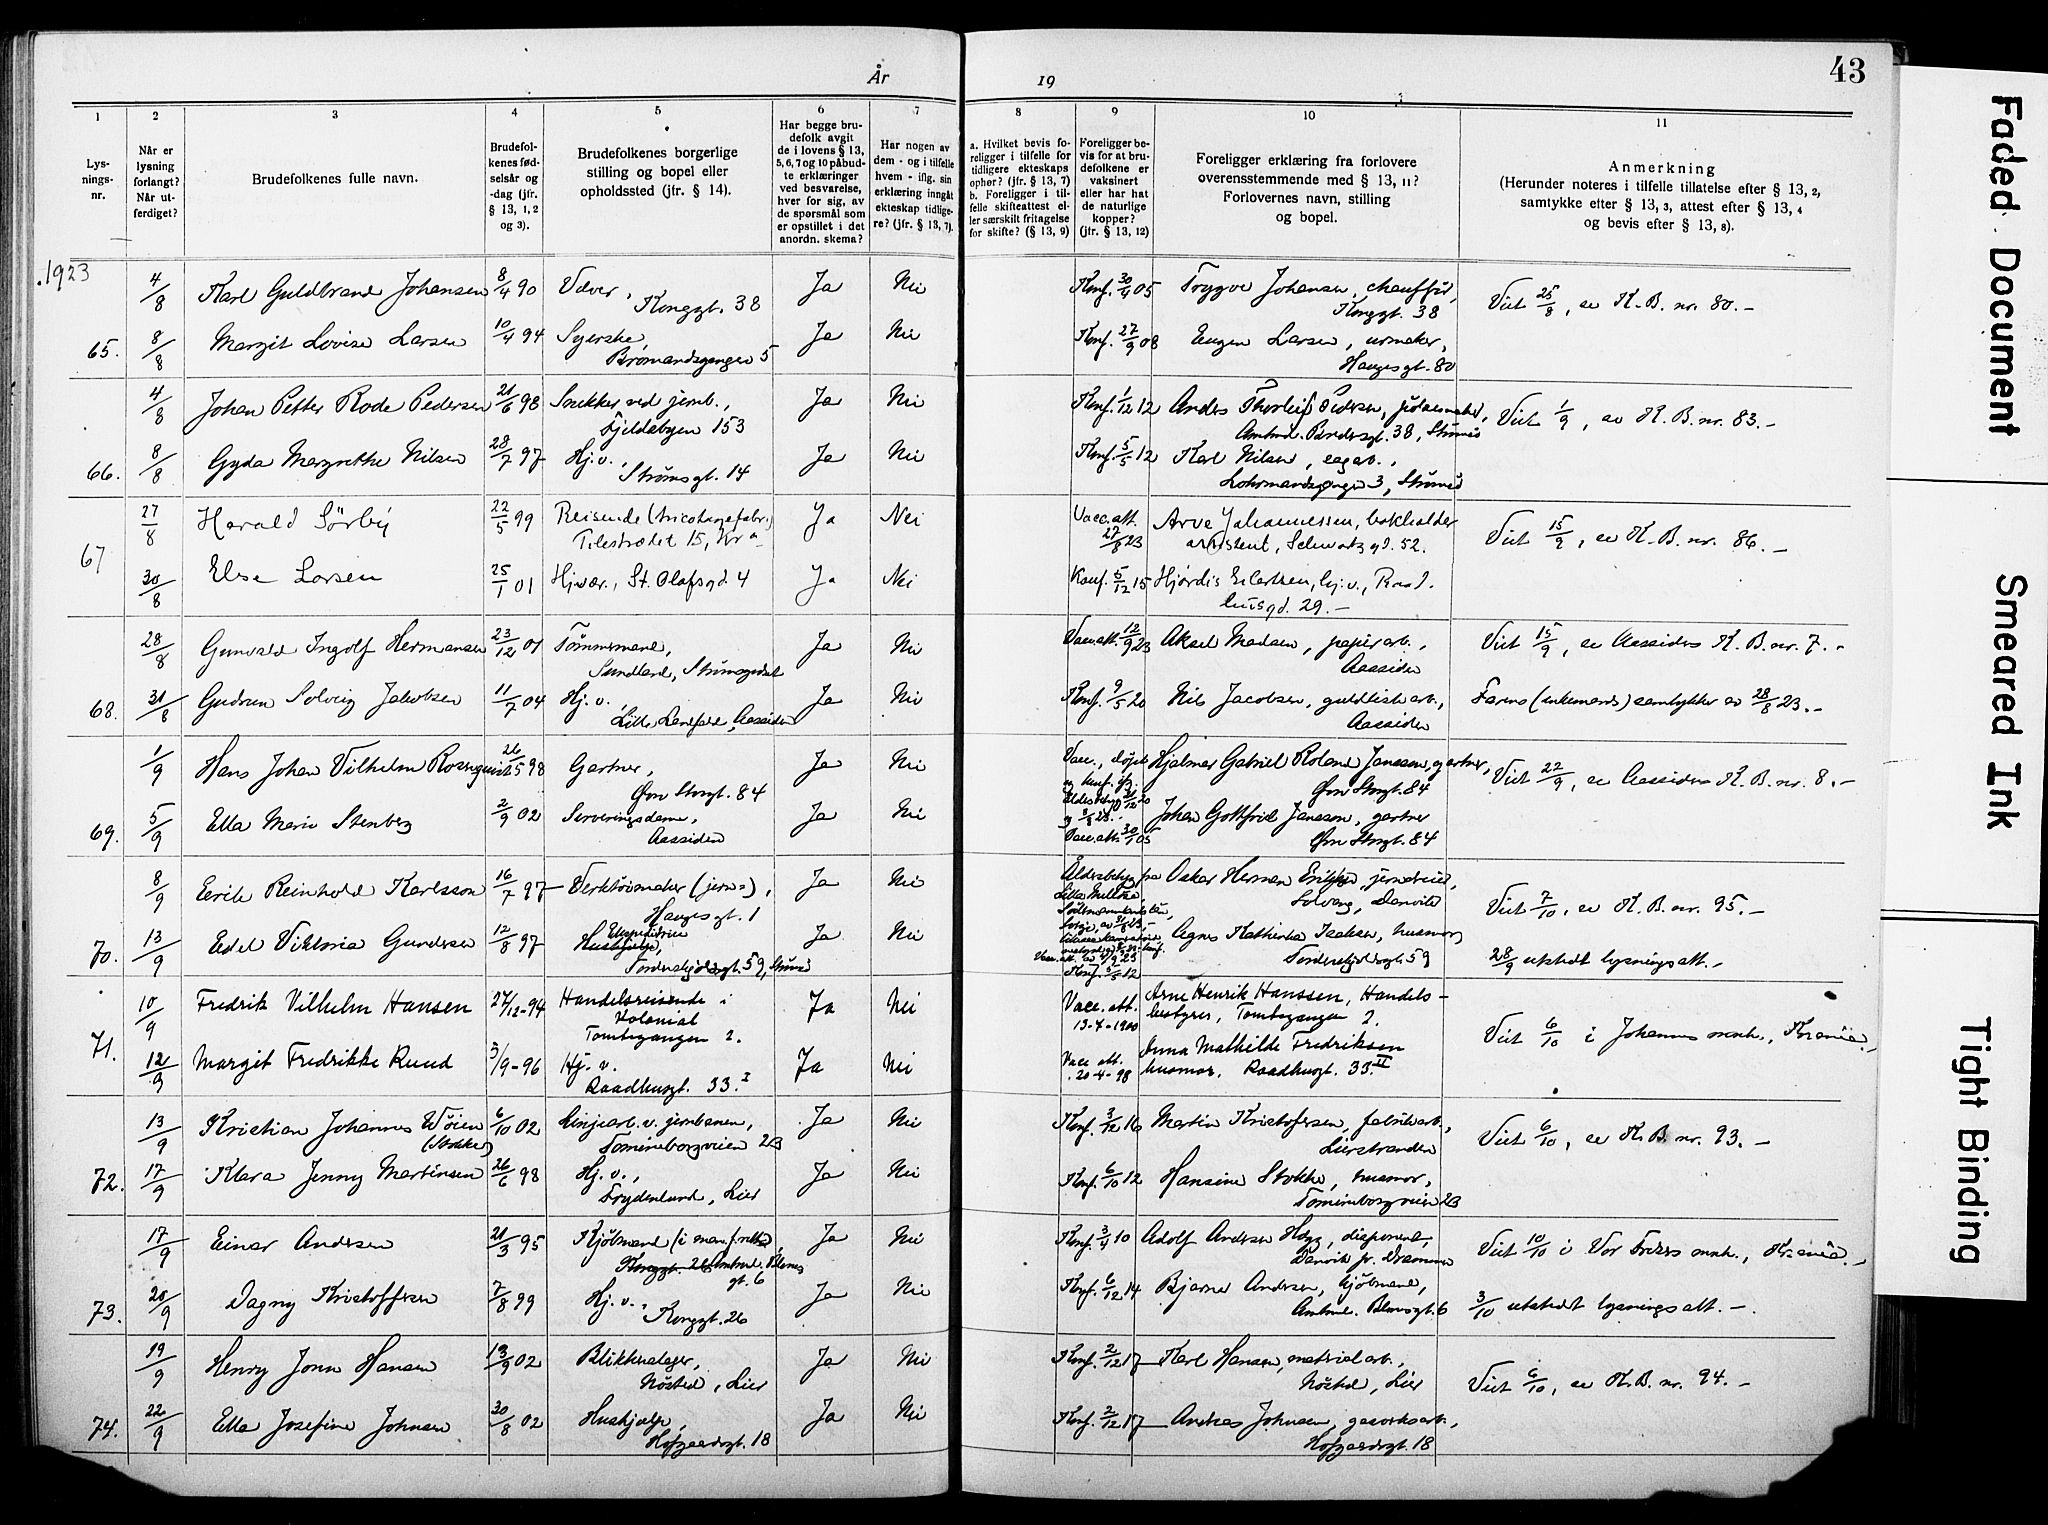 År
19
43
1
Lysnings-nr.
2
Når er lysning forlangt? Når utferdiget?
3
Brudefolkenes fulle navn.
4
Brudefolkenes fødselsår og -dag (jfr. § 13, 1, 2 og 3).
5
Brudefolkenes borgerlige stilling og bopel eller opholdssted (jfr. § 14).
6
Har begge brudefolk avgit de i lovens § 13, 5, 6, 7 og 10 påbudte erklæringer ved besvarelse, hver for sig, av de spørsmål som er opstillet i det anordn. skema?
7
Har nogen av dem - og i tilfelle hvem - iflg. sin erklæring inngåt ekteskap tidligere? (jfr. § 13, 7).
8
a. Hvilket bevis foreligger i tilfelle for tidligere ekteskaps ophør? (jfr. § 13, 7)
b. Foreligger i tilfelle skifteattest eller særskilt fritagelse for skifte? (§ 13, 9)
9
Foreligger bevis for at brudefolkene er vaksinert eller har hat de naturlige kopper? (jfr. § 13, 12)
10
Foreligger erklæring fra forlovere overensstemmende med § 13, 11? Forlovernes navn, stilling og bopel.
11
Anmerkning
(Herunder noteres i tilfelle tillatelse efter § 13, 2, samtykke efter § 13, 3, attest efter § 13, 4 og bevis efter § 13, 8).
1923
4/8 Karl Guldbrand Johansen 8/4 90 Væver, Kongsgt. 38 Ja Nei Konf. 30/4 05 Trygve Johansen, chauffør, Kongsgt. 38 Viet 25/8, se K. B. nr. 80. -
65. 8/8 Margit Lovise Larsen 10/4 94 Syerske, Brømandsgangen 5 Ja Nei Konf. 27/9 08 Eugen Larsen, urmaker, Haugesgt. 80
4/8 Johan Petter Rode Pedersen 21/6 98 Snekker ved jernb., Fjeldabyen 153 Ja Nei Konf. 1/12 12 Anders Thorleif Pedersen, 38, Strømsø Viet 1/9, se K. B. nr. 83. -
66. 8/8 Gyda Margrethe Nilsen 28/7 97 Hj. v., Strømsgt. 14 Ja Nei Konf. 5/5 12 Karl Nilsen, sagarb., 3, Strømsø
27/8 Harald Sörby 22/5 99 Reisende (tricotagefabr.) Ja Nei Vacc. att. 27/8 23 Arve Johannessen, bokholder assistent, Schwartzgd. 52. Viet 15/9, se K. B. nr. 86. -
67 30/8 Else Larsen 25/1 01 Hj.vær., St. Olafsgd. 4 Ja Nei Konf. 5/12 15 Hjørdis Eilertsen, hj. v., Raadhusgd. 29. -
28/8 Gunvald Ingolf Hermansen 23/12 01 Tømmermand, Sundland, Strømsgodset Ja Nei Vacc. att. 12/9 23 Aksel Madsen, papirarb., Aassiden Viet 15/9, se Aassidens K. B. nr. 7. -
68. 31/8 Gudrun Solveig Jakobsen 11/7 04 Hj. v. Lille Landfald, Aassiden Ja Nei Konf. 9/5 20 Nils Jacobsen, guldlistarb., Aassiden Farens (enkemands) samtykke av 28/8 23. -
1/9 Hans Johan Vilhelm Rosenquist 26/5 98 Gartner, Øvre Storgt. 84 Ja Nei Vacc., døpt og konf. Hjalmar Gabriel Roland Jansson, gartner, Øvre Storgt. 84 Viet 22/9, se Aassidens K. B. nr. 8. -
69. 5/9 Ella Marie Stenberg 2/9 02 Serveringsdame, Aassiden Ja Nei Vacc. att. 30/1 05 Johan Gottfried Jansson, gartner Øvre Storgt. 84
8/9 Eerik Reinhold Karlsson 16/7 97 Verktøimaker (jern=), Haugesgt. 1 Ja Nei Åldersbetyg fra Oskar Herman, Solvang, Danvik Viet 7/10, se K. B. nr. 95. -
70. 13/9 Edel Viktoria Gundersen 12/8 97 Ekspeditrice Hushjelp, Tordenskjoldsgt. 59, Strømsø Ja Nei Konf. 5/5 12 Agnes Kathinka Isaksen, husmor, Tordenskjoldsgt. 59 28/9 utstedt lysningsatt. -
10/9 Fredrik Vilhelm Hansen 27/12-94 Handelsreisende i Kolonial Tomtegangen 2. Ja Nei Vacc. att. 13-4-1900 Arne Henrik Hanssen, Handels-bestyrer, Tomtegangen 2. Viet 6/10 i Johannes mnh., Kr.ania. -
71. 12/9 Margit Fredrikke Ruud 3/9-96 Hj. v. Raadhusgt. 33. I Ja Nei Vacc att. 20-4-98 Anna Mathilde Fredriksen husmor. Raadhusgt. 33. II
13/9 Kristian Johannes Wøien (Stokke) 6/10 02 Linjearb. v. jernbanen, Tomineborgveien 23 Ja Nei Konf. 3/12 16 Martin Kristoffersen, fabrikarb., Lierstranden Viet 6/10, se K. B. nr. 93. -
72. 17/9 Klara Jenny Martinsen 26/6 98 Hj. v., Frydenlund, Lier Ja Nei Konf. 6/10 12 Hansine Stokke, husmor, Tomineborgveien 23
17/9 Einar Andersen 21/3 95 Kjøbmand (i man.f.retn.) Kongsgt. 26 Amtmd. Blomsgt. 6 Ja Nei Konf. 3/4 10 Adolf Andersen Høyg, disponent, Danvik pr. Drammen Viet 10/10 i Vor Frelsers mnh., Kr.ania. -
73. 20/9 Dagny Kristoffersen 7/8 99 Hj. v., Kongsgt. 26 Ja Nei Konf. 6/12 14 Bjarne Andersen, kjøbmand, Amtmd. Blomsgt. 6 3/10 utstedt lysningsatt. -
19/9 Henry Jonn Hansen 13/9 02 Blikkenslager, Nøsted, Lier Ja Nei Konf. 2/12 17 Karl Hansen, materialarb., Nøsted, Lier Viet 6/10, se K. B. nr. 94. -
74. 22/9 Ella Josefine Johnsen 30/8 02 Hushjælp, Hofgaardsgt. 18 Ja Nei Konf. 2/12 17 Andreas Johnsen, gasverksarb., Hofgaardsgt. 18
Faded Document
Smeared Ink
Tight Binding